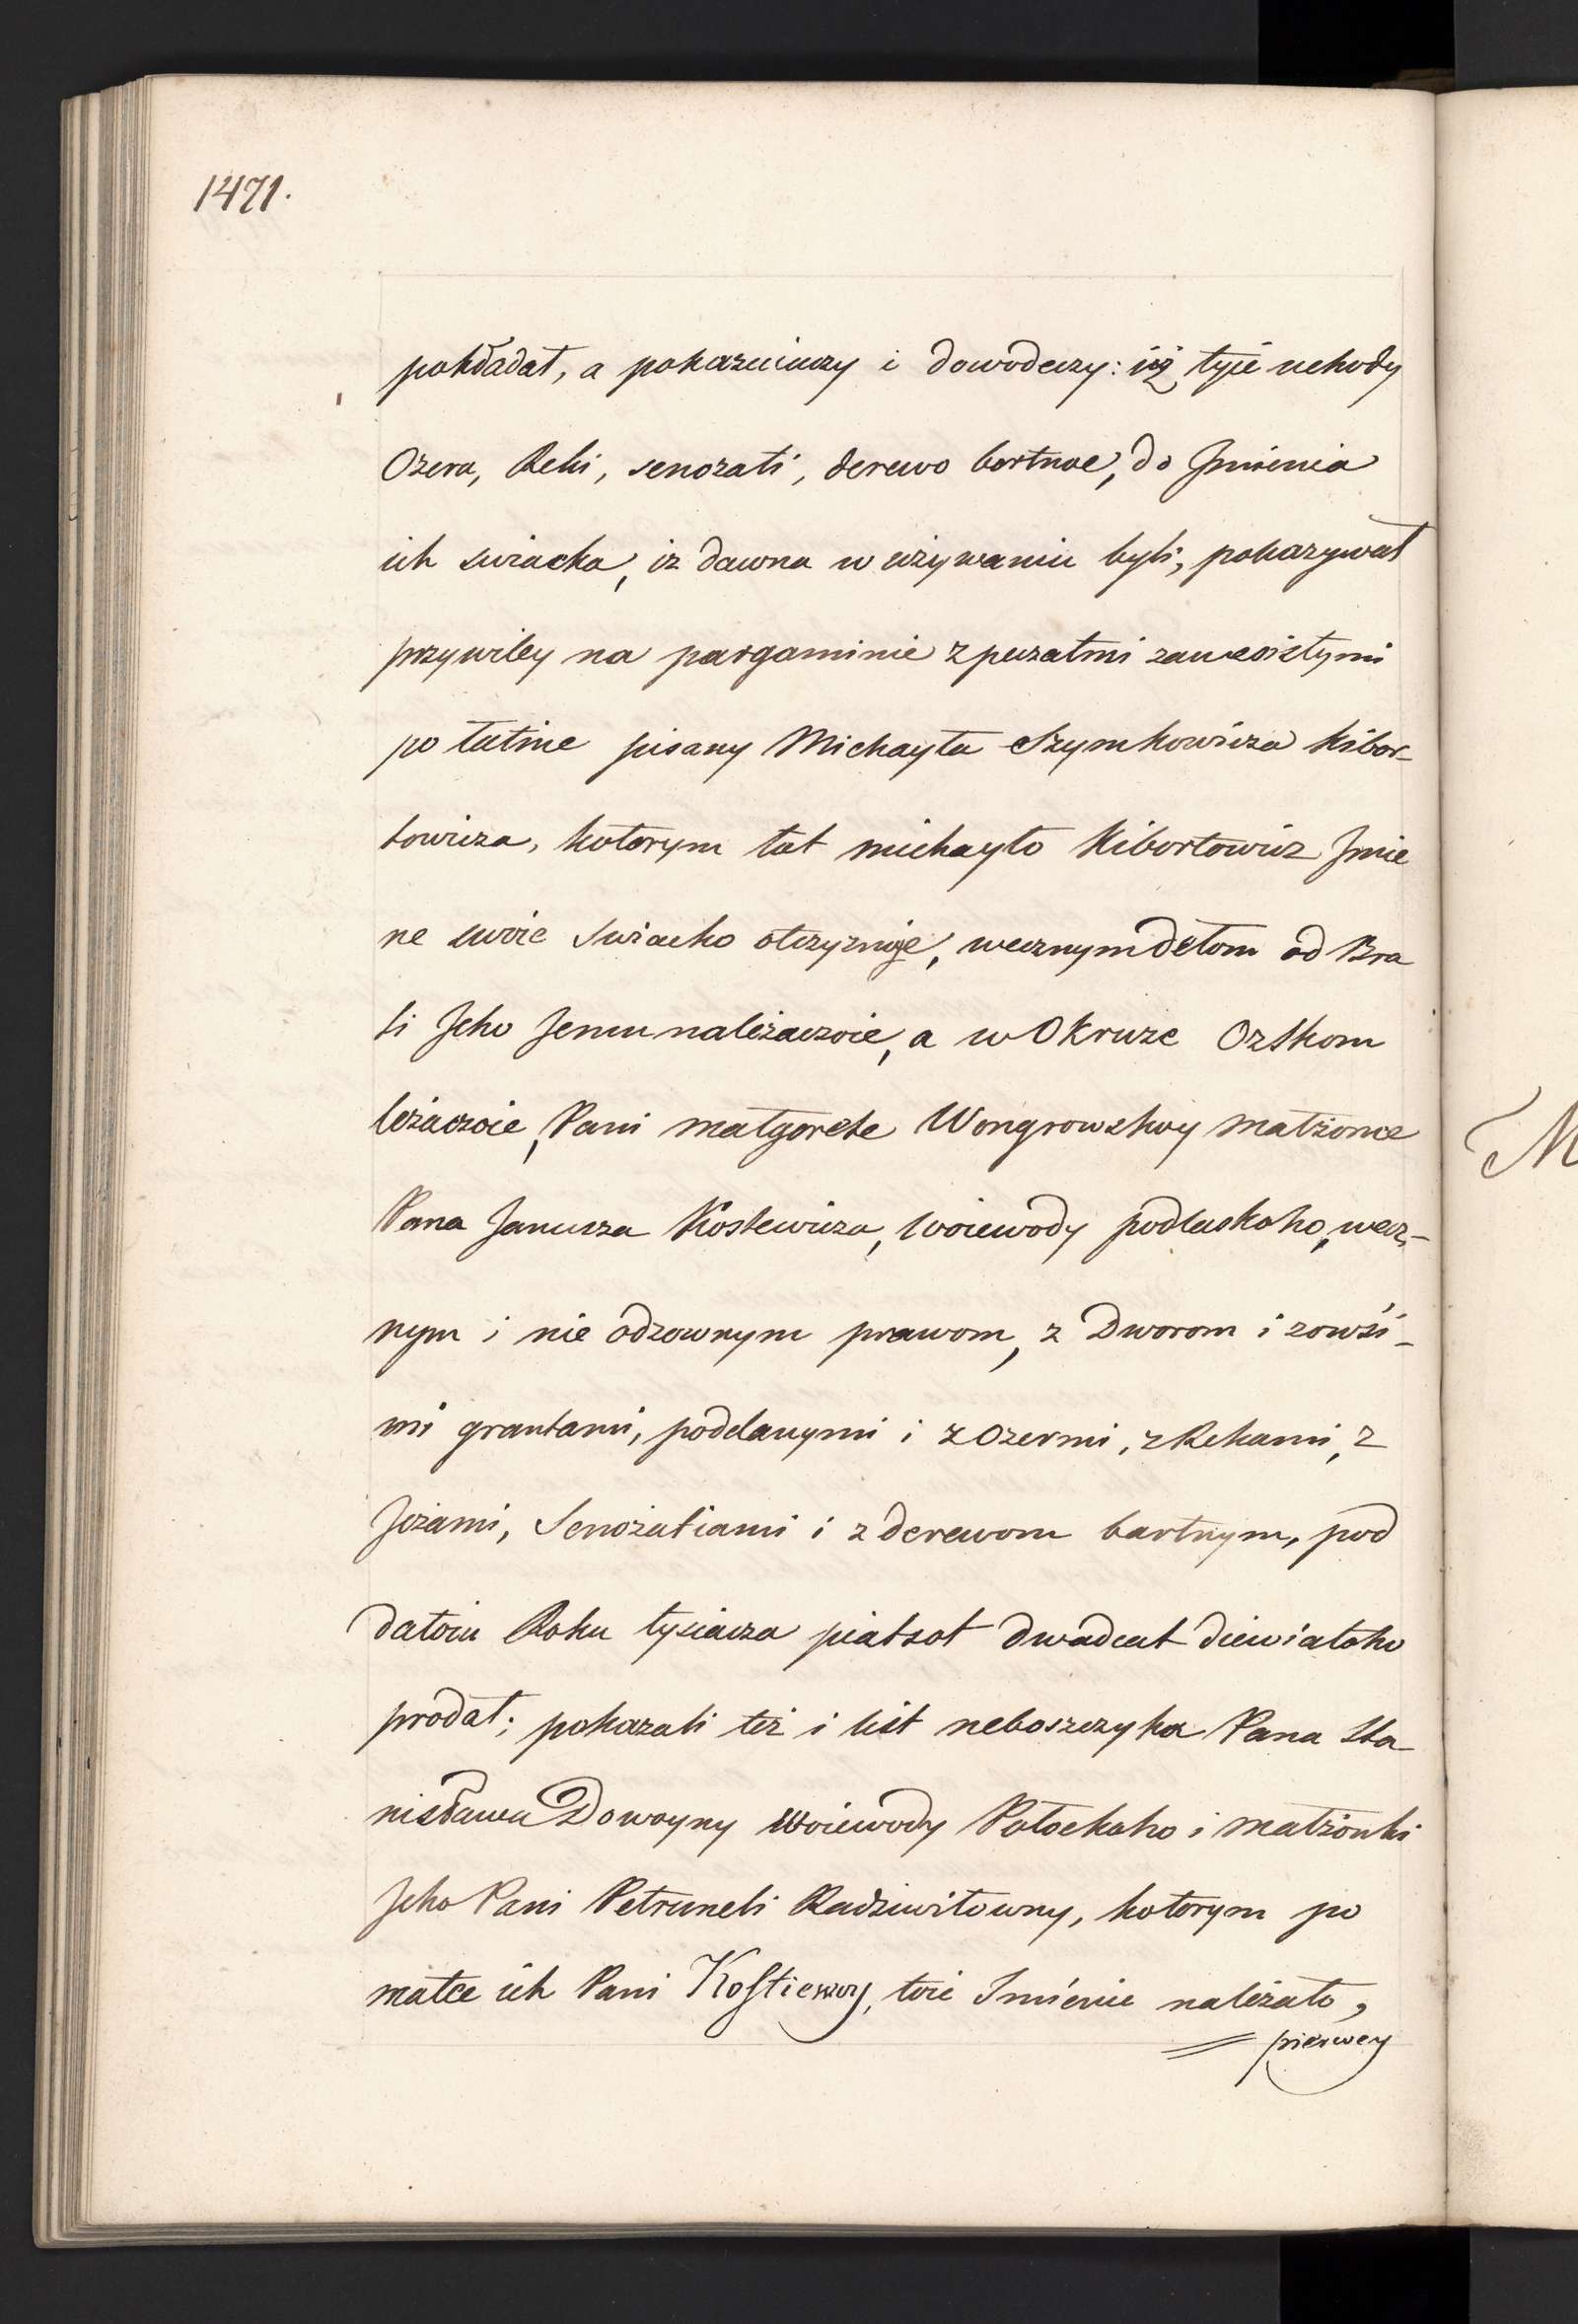 1471.
pokładał, a pokazuiuczy i dowodeczy: iż tyie uchody
Ozera, Reki, senozati, derewo bortnoe, do Jmienia
ich swiacka, iz dawna w używaniu byli, pokazywał
przywiley na pargaminie z peczatmi zawesistymi
po łatine pisany Michayła Szymkowicza Kibor-
towicza, kotorym tot michayło Kibortowicz Jmie
ne swoie Swiacko otczyznoje, wecznym dełom od Bra
ti Jeho Jemu należaczoie, a w Okruze Ozskom
leżaczoie, Pani małgorete Wongrowskoy małżonce
Pana Janusza Kostewicza, woiewody podlaskoho, wecz-
nym i nie odzownym prawom, z Dworom i zowsi-
mi gruntami, poddanymi i z Ozermi, z Rekami, z
Jezami, Senożatiami i z derewom bartnym, pod
datoiu Roku tysiacza piatsot dwadcat diewiatoho
prodał; pokazali też i list neboszczyka Pana Sta-
nisława Dowoyny Woiewody Połockoho i małżonki
Jeho Pani Petruneli Radziwiłowny, kotorym po
matce ich Pani Kostiewoy, toie Jmienie należało,
= pierwey
M